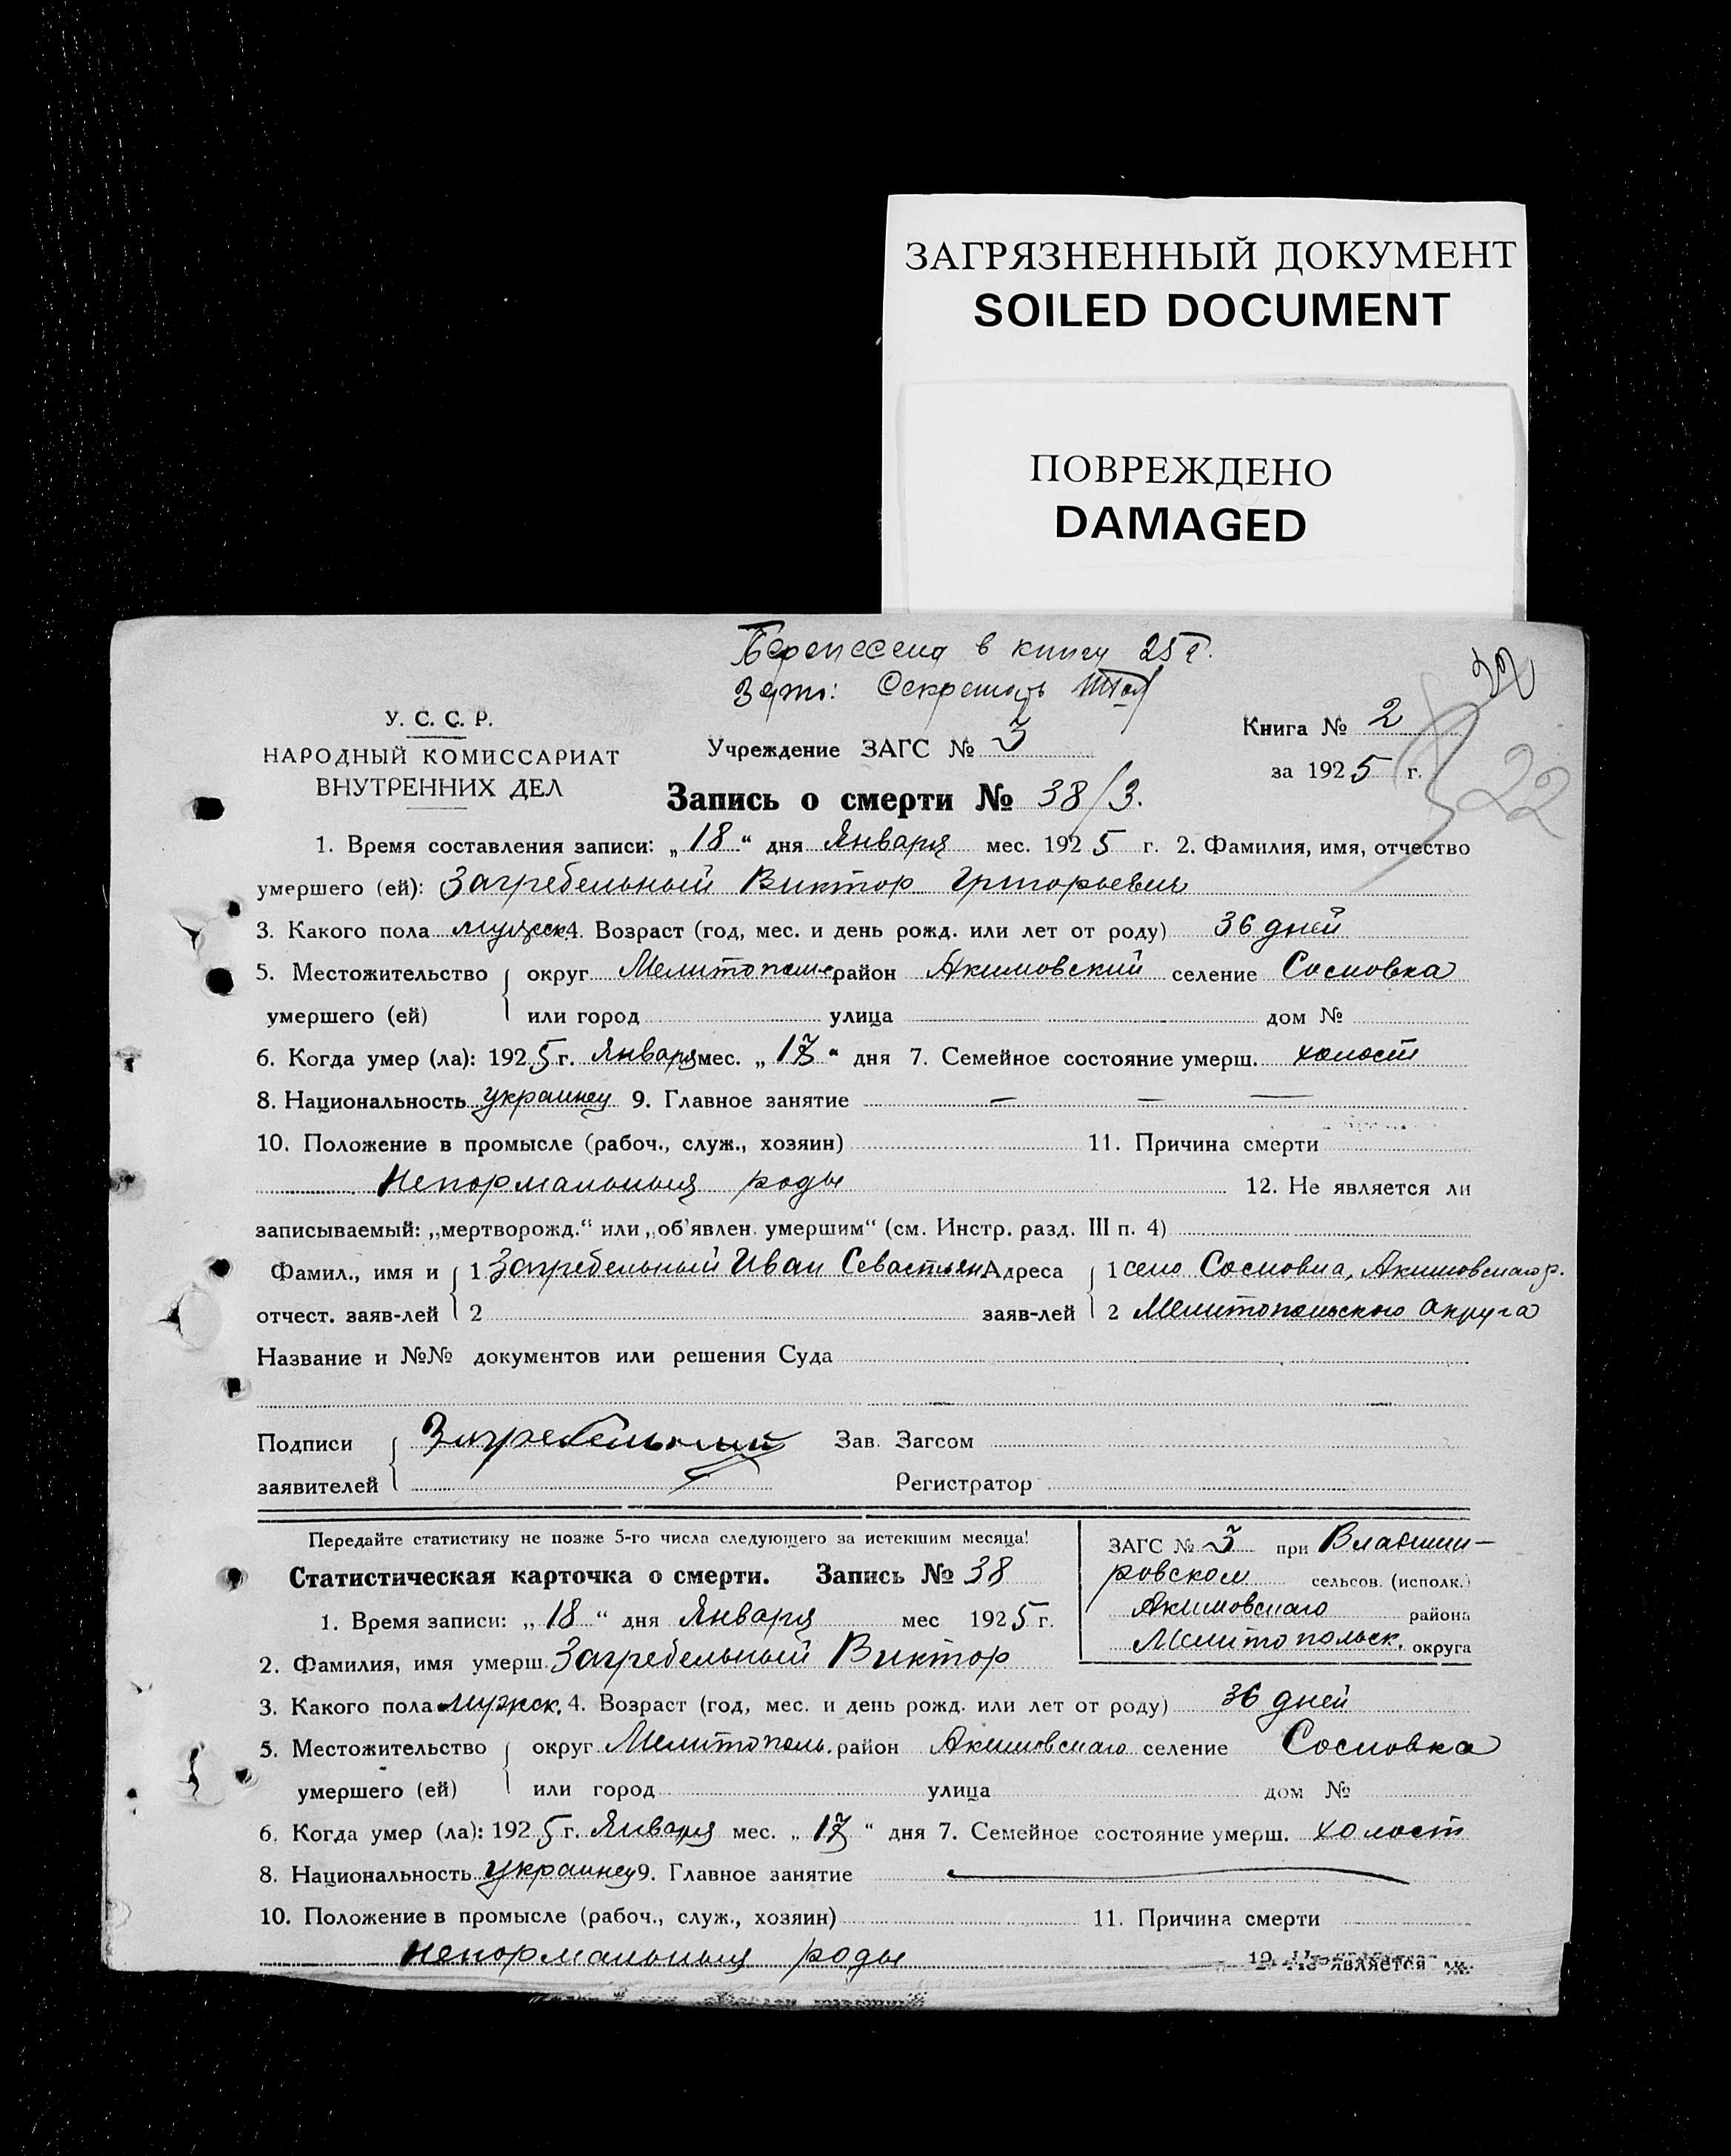 ЗАГРЯЗНЕННЫЙ ДОКУМЕНТ
SOILED DOCUMENT
ПОВРЕЖДЕНО
DAMAGED
Перенесена в книгу 25 г.
Секретарь
32
У. С. С. Р.
НАРОДНЫЙ КОМИССАРИАТ
ВНУТРЕННИХ ДЕЛ
Учреждение ЗАГС № 3
Книга № 2
за 1925 г.
22
Запись о смерти № 38/3.
1. Время составления записи: „18“ дня Января мес. 1925 г. 2. Фамилия, имя, отчество
умершего (ей): Загребельный Виктор Григорьевич
3. Какого пола мужск. 4. Возраст (год, мес. и день рожд. или лет от роду) 36 дней
5. Местожительство округ Мелитополь район Акимовский селение Сосновка
умершего (ей) или город улица дом №
6. Когда умер (ла): 1925 г. Января мес. „17“ дня 7. Семейное состояние умерш. холост
8. Национальность украинец 9. Главное занятие — — —
10. Положение в промысле (рабоч., служ., хозяин) 11. Причина смерти
Ненормальныя роды 12. Не является ли
записываемый: „мертворожд.“ или „об'явлен. умершим“ (см. Инстр. разд. III п. 4)
Фамил., имя и 1 Загребельный Иван Севастьян. Адреса 1 село Сосновка, Акимовскаго р.
отчест. заяв-лей 2 заяв-лей 2 Мелитопольского округа
Название и №№ документов или решения Суда
Подписи Загребельный Зав. Загсом
заявителей Регистратор
Передайте статистику не позже 5-го числа следующего за истекшим месяца!
Статистическая карточка о смерти. Запись № 38
ЗАГС № 3 при Владими-
ровском сельсов. (исполк.)
Акимовскаго района
Мелитопольск. округа
1. Время записи: „18“ дня Января мес 1925 г.
2. Фамилия, имя умерш. Загребельный Виктор
3. Какого пола мужск. 4. Возраст (год, мес. и день рожд. или лет от роду) 36 дней
5. Местожительство округ Мелитополь. район Акимовскаго селение Сосновка
умершего (ей) или город улица дом №
6. Когда умер (ла): 1925 г. Января мес. „17“ дня 7. Семейное состояние умерш. холост
8. Национальность украинец 9. Главное занятие —
10. Положение в промысле (рабоч., служ., хозяин) 11. Причина смерти
ненормальныя роды 12. Не является ли